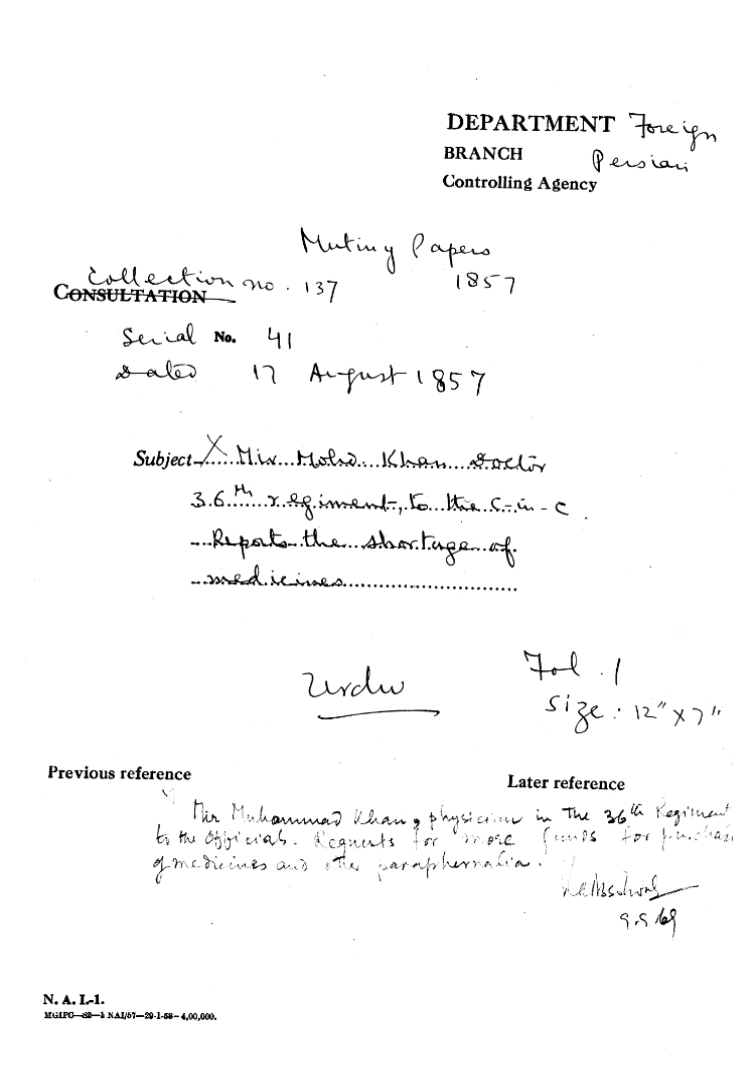 DEPARTMENT Foreign
BRANCH Persian
Controlling Agency
Mutiny Papers
1857
Collection no. 137
CONSULTATION
Serial No. 41
Dated 17 August 1857
Subject X Mir Mohd. Khan Doctor
36th regiment, to the C-in-C.
Reports the shortage of
medicines
Urdu
Fol. 1
Size: 12" x 7"
Previous reference
Later reference
Mir Muhammad Khan, physician in the 36th Regiment
to the Officials. Requests for more funds for purchas
of medicines and other paraphernalia.
9.9.69
N. A. I.-1.
MGIPC—S2—1 NAI/57—29-1-58—4,00,000.